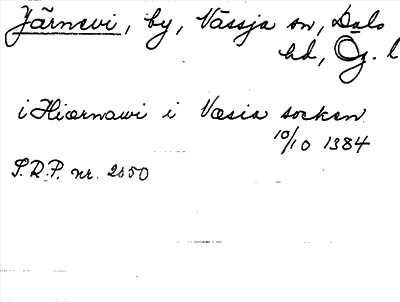 Järnevi, by, Vässja sn, Dals
hd, Ög. l
i Hiærnawi i Væsia socken
10/10 1384
S.R.P. nr. 2050